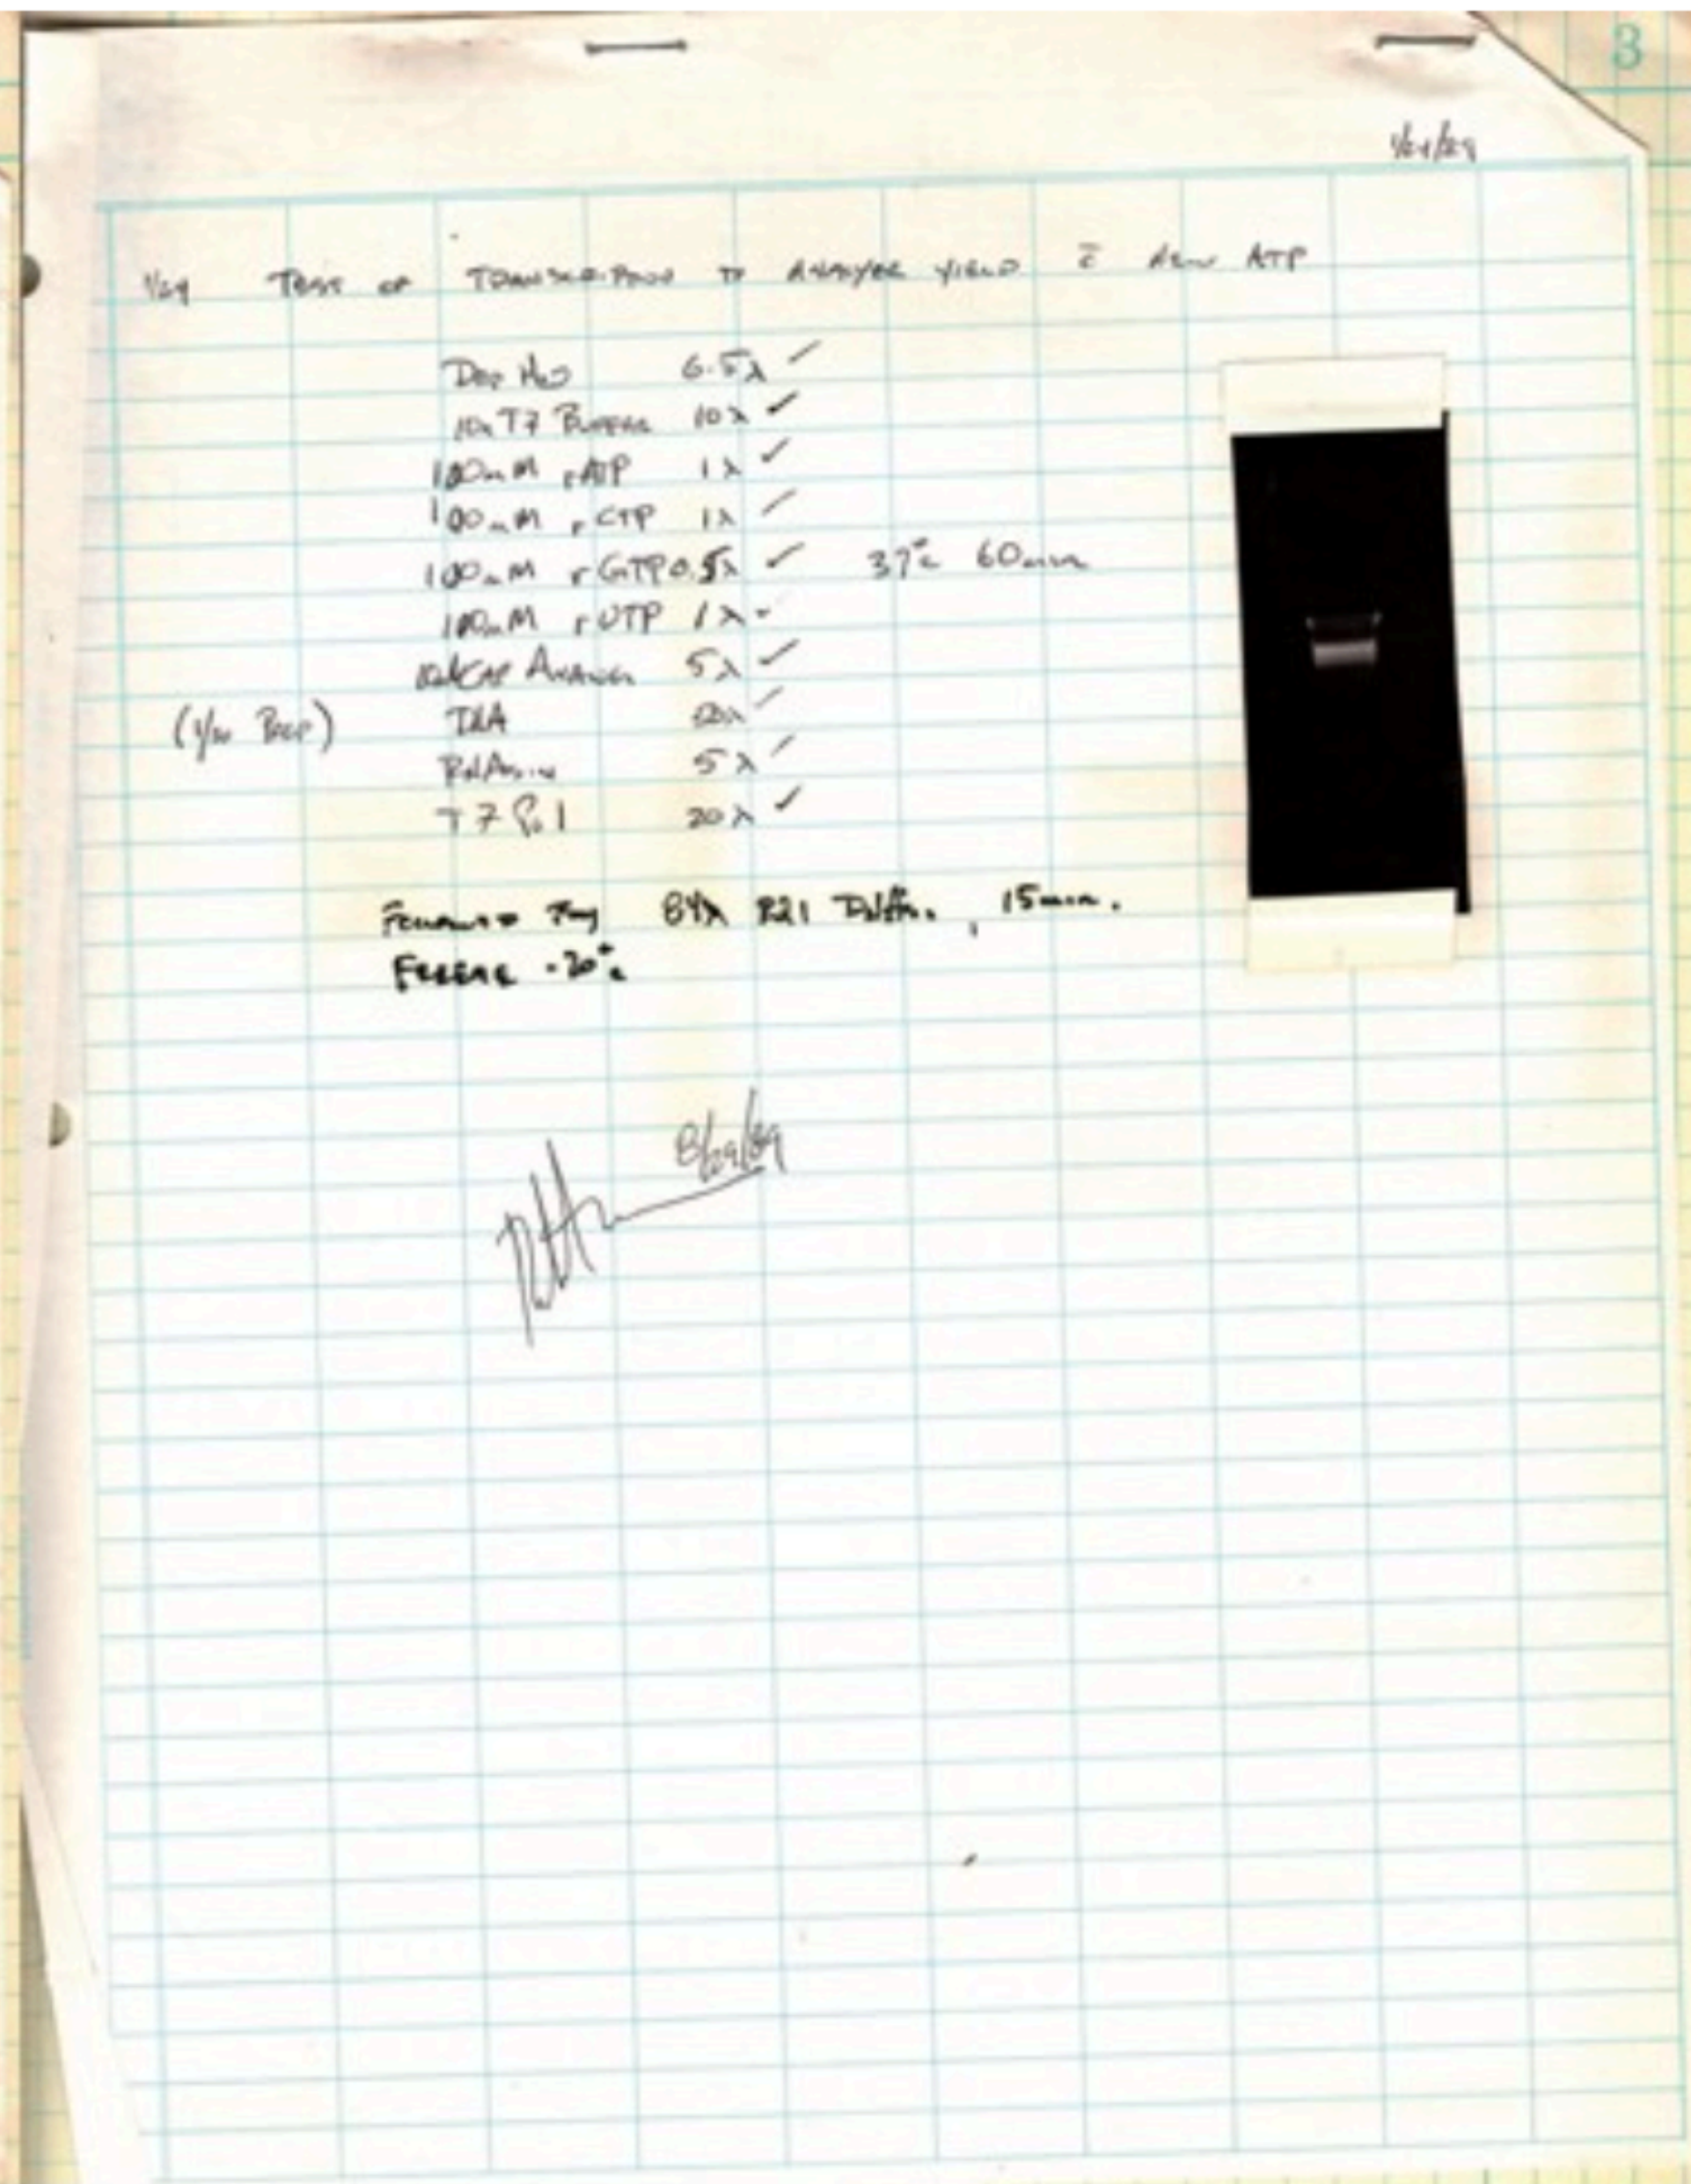 3
1/29/89
1/29 TEST OF TRANSCRIPTION TO ANALYZE YIELD c̄ NEW ATP
DEP H2O 6.5λ ✓
10x T7 BUFFER 10λ ✓
100mM rATP 1λ ✓
100mM rCTP 1λ ✓
100mM rGTP 0.5λ ✓ 37°C 60min
100mM rUTP 1λ ✓
CAP ANALOG 5λ ✓
DNA ✓
RNAsin 5λ ✓
T7 Pol 20λ ✓
FOLLOWED BY 84λ RQ1 DNAse, 15min.
FREEZE -20°C
8/29/89